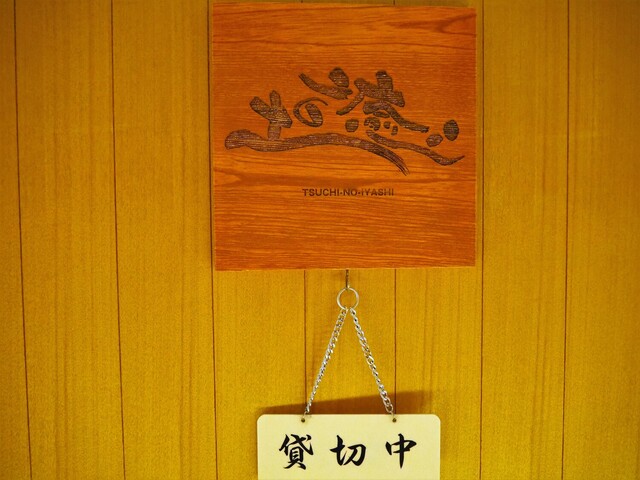 土の癒
TSUCHI-NO-IYASHI
貸切中